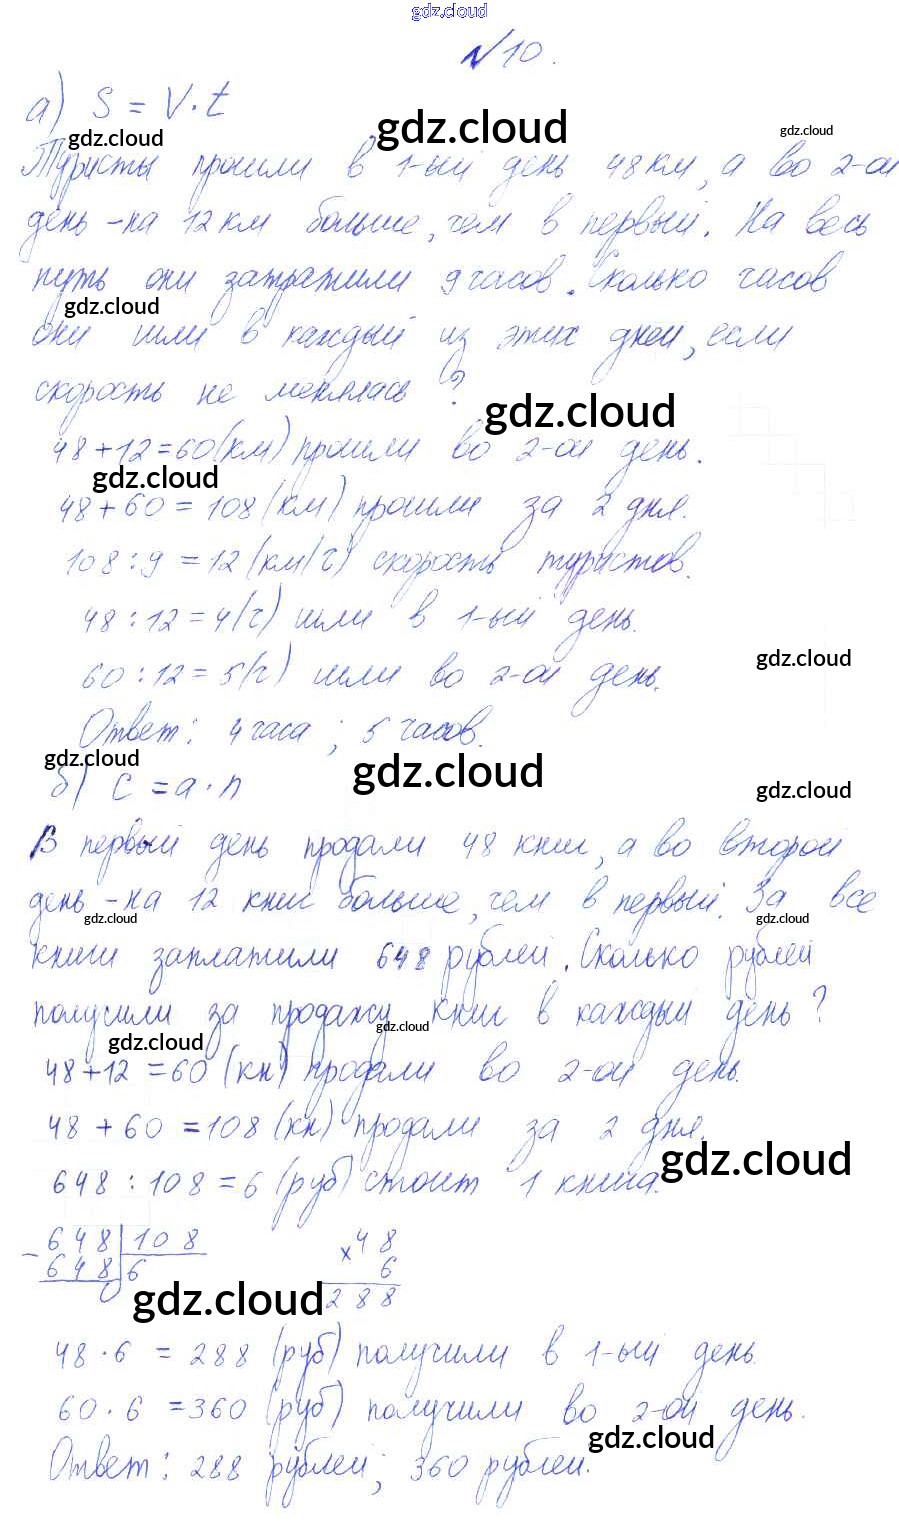 gdz.cloud
№10.
а) S = V · t
gdz.cloud gdz.cloud gdz.cloud
Туристы прошли в 1-ый день 48 км, а во 2-ой
день - на 12 км больше, чем в первый. На весь
путь они затратили 9 часов. Сколько часов
gdz.cloud
они шли в каждый из этих дней, если
скорость не менялась?
gdz.cloud
48 + 12 = 60 (км) прошли во 2-ой день.
gdz.cloud
48 + 60 = 108 (км) прошли за 2 дня.
108 : 9 = 12 (км/ч) скорость туристов.
48 : 12 = 4 (ч) шли в 1-ый день.
gdz.cloud
60 : 12 = 5 (ч) шли во 2-ой день.
Ответ: 4 часа; 5 часов.
gdz.cloud gdz.cloud gdz.cloud
б) C = a · n
В первый день продали 48 книг, а во второй
день - на 12 книг больше, чем в первый. За все
gdz.cloud gdz.cloud
книги заплатили 648 рублей. Сколько рублей
получили за продажу книг в каждый день?
gdz.cloud gdz.cloud
48 + 12 = 60 (кн) продали во 2-ой день.
48 + 60 = 108 (кн) продали за 2 дня.
gdz.cloud
648 : 108 = 6 (руб) стоит 1 книга.
- 648 | 108 × 48
648 | 6 6
0 288
gdz.cloud
48 · 6 = 288 (руб) получили в 1-ый день.
60 · 6 = 360 (руб) получили во 2-ой день.
gdz.cloud
Ответ: 288 рублей; 360 рублей.